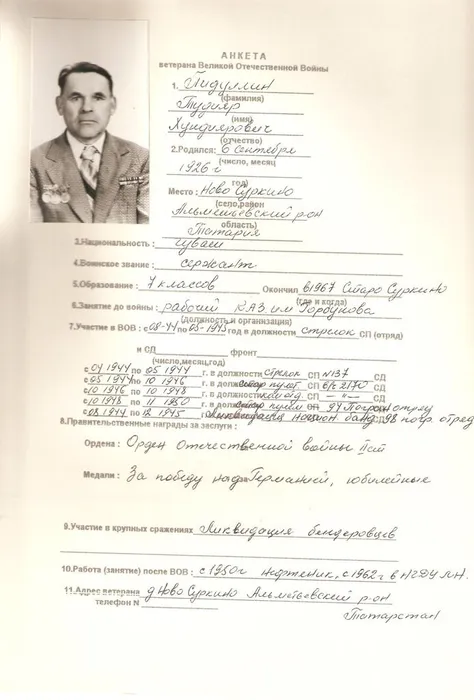 АНКЕТА
ветерана Великой Отечественной Войны
1. Гидуллин
(фамилия)
Тудияр
(имя)
Хундиярович
(отчество)
2.Родился: 6 Сентября
(число, месяц
1926 г
год)
Место : Ново Суркино
(село,район
Альметьевский р-он
область)
Татария
3.Национальность : чуваш
4.Воинское звание : сержант
5.Образование : 7 классов Окончил в1967 Старо Суркино
(где и когда)
6.Занятие до войны : рабочий КАЗ им Горбунова
(должность и организация)
7.Участие в ВОВ : с 08-44 по 05-1945 год в должности стрелок СП (отряд)
и СД фронт
(число,месяц,год)
с 04 1944 по 05 1944 г. в должности стрелок СП №137 СД
с 05 1944 по 10 1946 г. в должности СП в/ч 2170 СД
с 10 1946 по 10 1948 г. в должности СП — " — СД
с 10 1948 по 11 1950 г. в должности СП 94 Погран отряд
с 08.1944 по 12 1945 г. в должности Ликвидация банд. 98 погр. отряд
8.Правительственные награды за заслуги :
Ордена : Орден Отечественной Войны IIст
Медали : За победу над Германией, юбилейные
9.Участие в крупных сражениях Ликвидация бендеровцев
10.Работа (занятие) после ВОВ : с 1950г нефтеник, с 1962г в НГДУ
11.Адрес ветерана д Ново Суркино Альметьевский р-он
телефон N
Татарстан